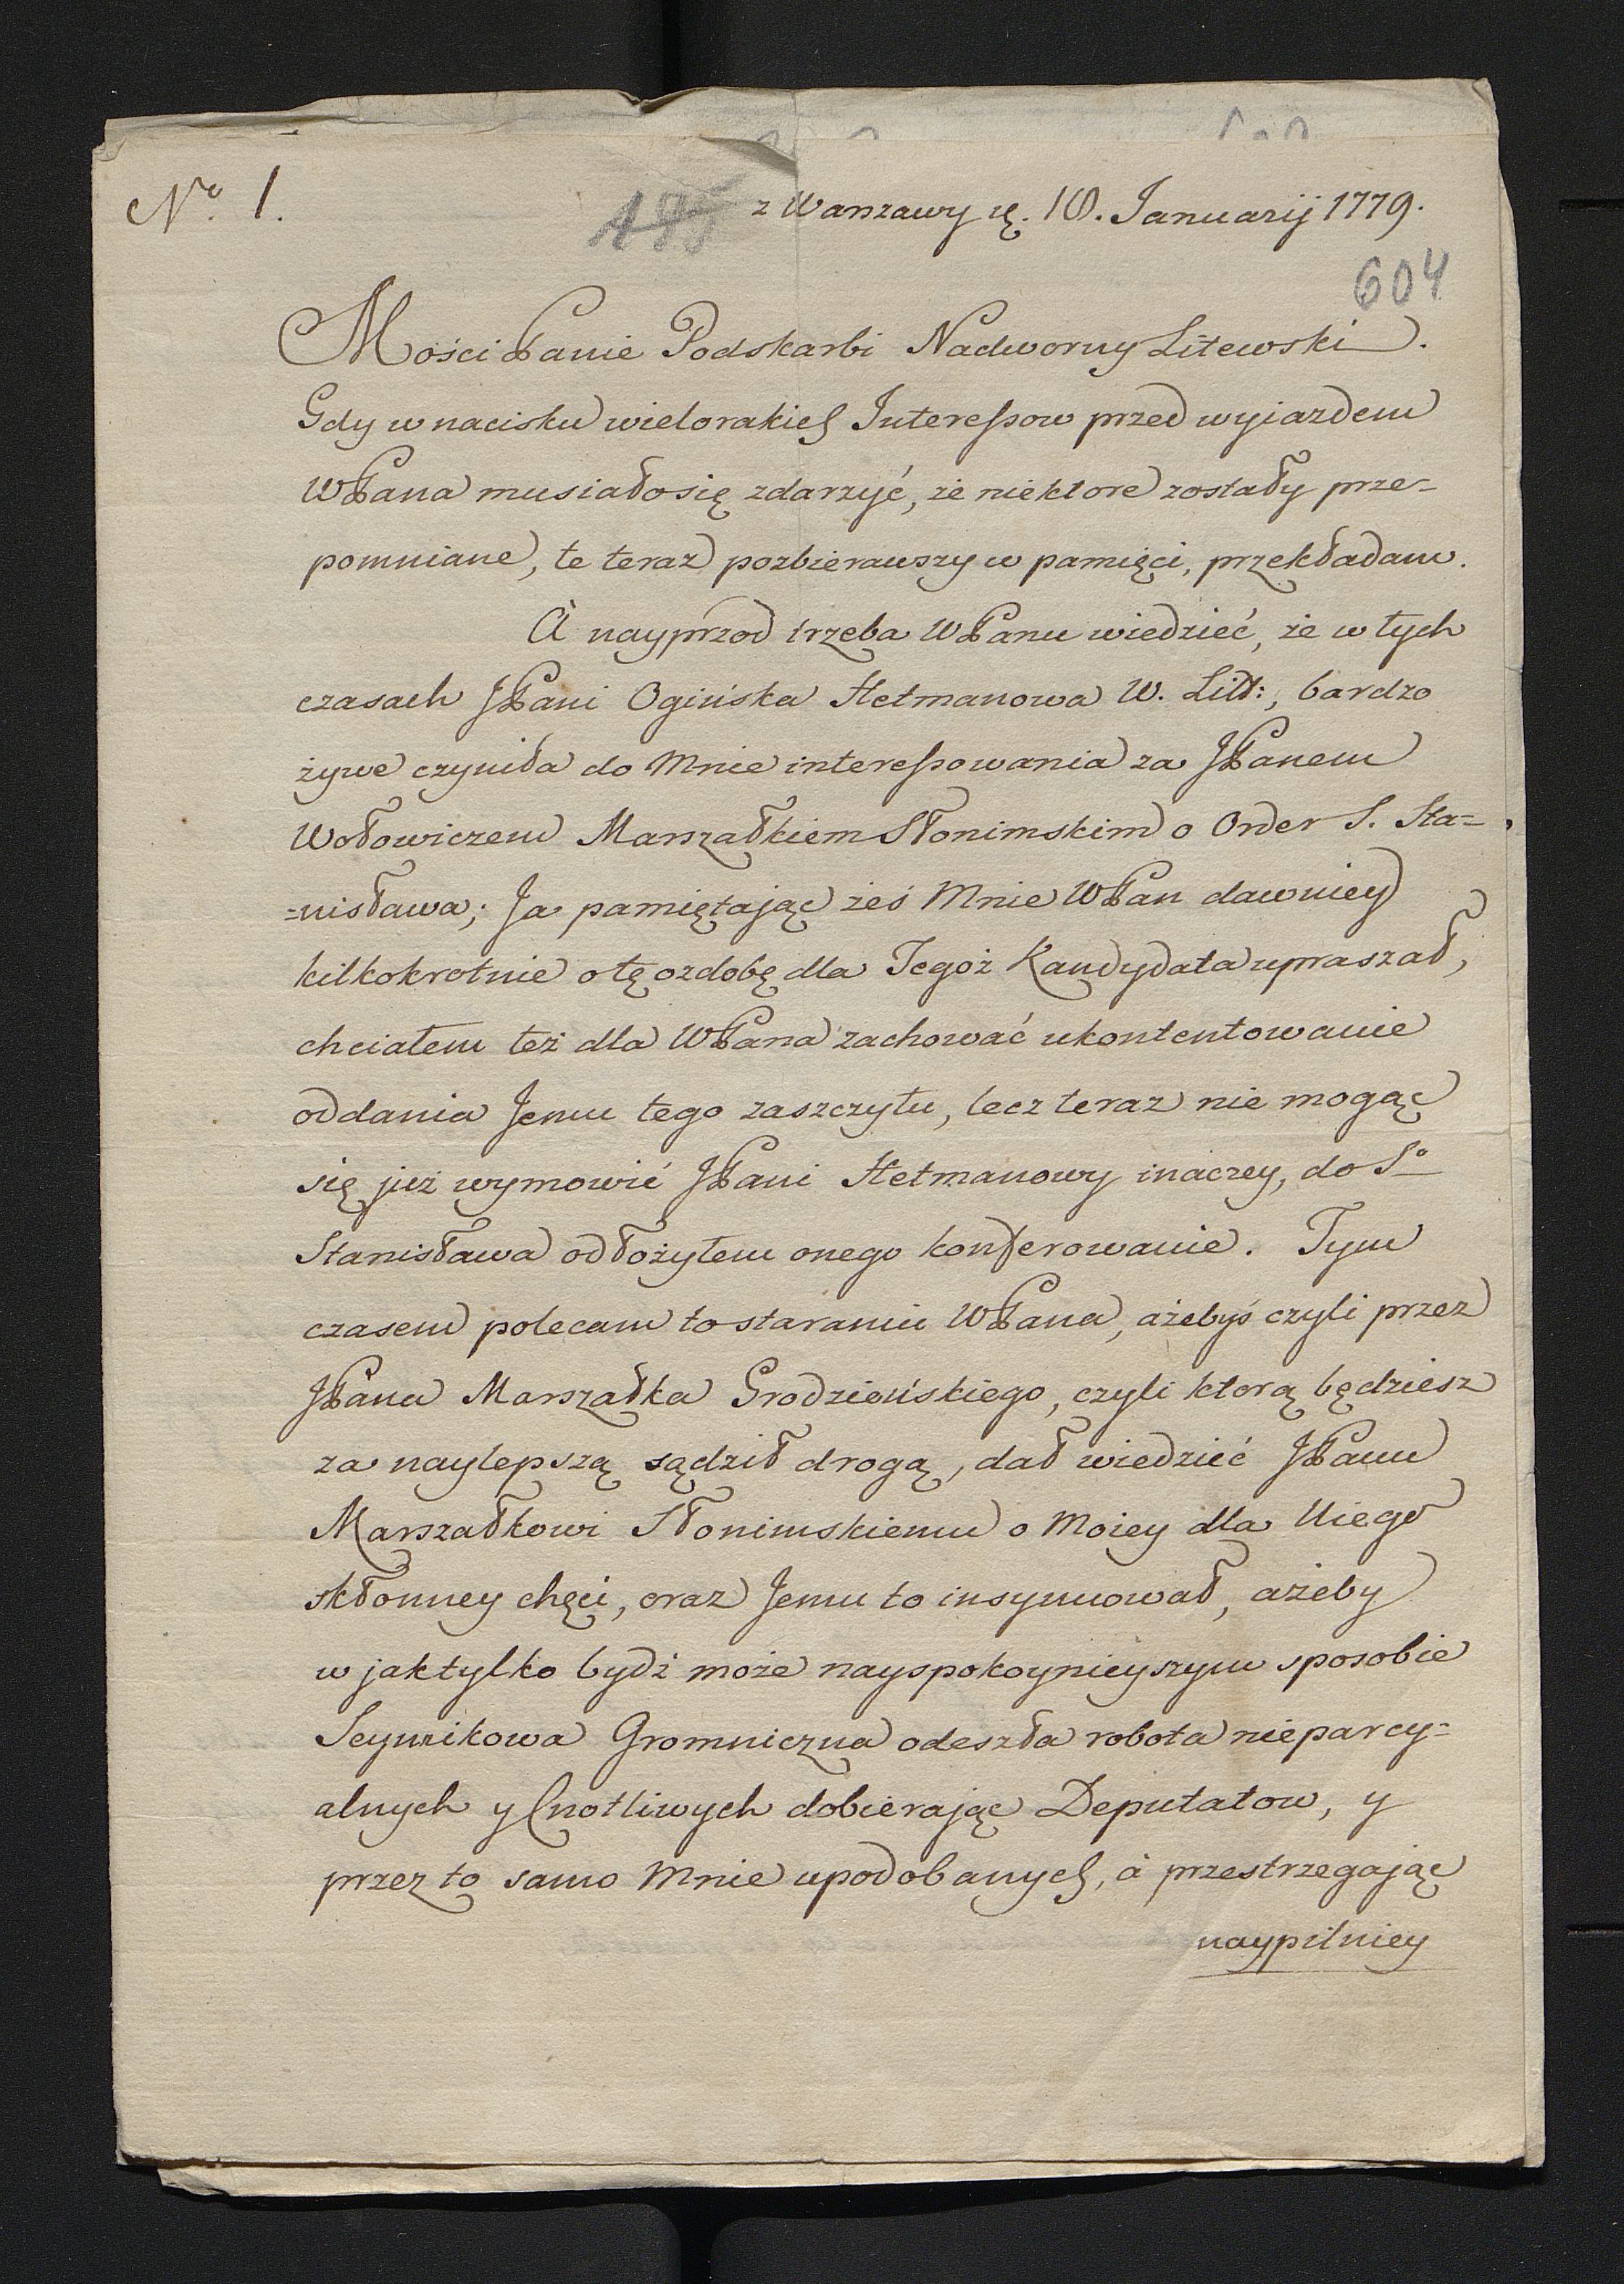 No. 1.
z Warszawy d. 10. Januarij 1779.
604
Mości Panie Podskarbi Nadworny Litewski.
Gdy w nacisku wielorakich Interessow przed wyiazdem
WPana musiało się zdarzyć, że niektore zostały prze-
pomniane, te teraz pozbierawszy w pamięci, przekładam.
A nayprzod trzeba WPanu wiedzieć, że w tych
czasach JPani Ogińska Hetmanowa W. Litt:, bardzo
żywe czyniła do Mnie interessowania za JPanem
Wołowiczem Marszałkiem Słonimskim o Order S. Sta=
=nisława; Ja pamiętając żeś Mnie WPan dawniey
kilkokrotnie o tę ozdobę dla Tegoż Kandydata upraszał,
chciałem też dla WPana zachować ukontentowanie
oddania Jemu tego zaszczytu, lecz teraz nie mogąc
się już wymowić JPani Hetmanowy inaczey, do So
Stanisława odłożyłem onego konferowanie. Tym
czasem polecam to staraniu WPana, ażebyś czyli przez
JPana Marszałka Grodzieńskiego, czyli ktorą będziesz
za naylepszą sądził drogą, dał wiedzieć JPanu
Marszałkowi Słonimskiemu o Moiey dla Niego
skłonney chęci, oraz Jemu to insynuował, ażeby
w jak tylko bydź może nayspokoynieyszym sposobie
Seymikowa Gromniczna odeszła robota nieparcy=
alnych y Cnotliwych dobierając Deputatow, y
przez to samo Mnie upodobanych, à przestrzegając
naypilniey